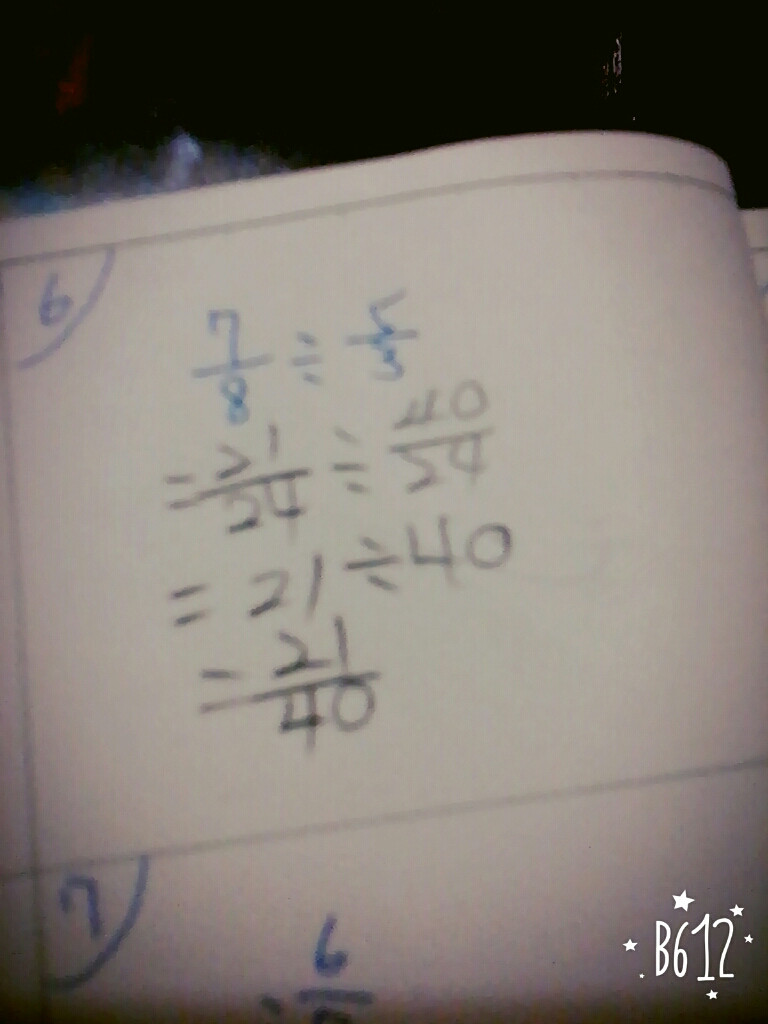 6)
7/8 ÷ 5/3
= 21/24 ÷ 40/24
= 21 ÷ 40
= 21/40
7)
6
B612